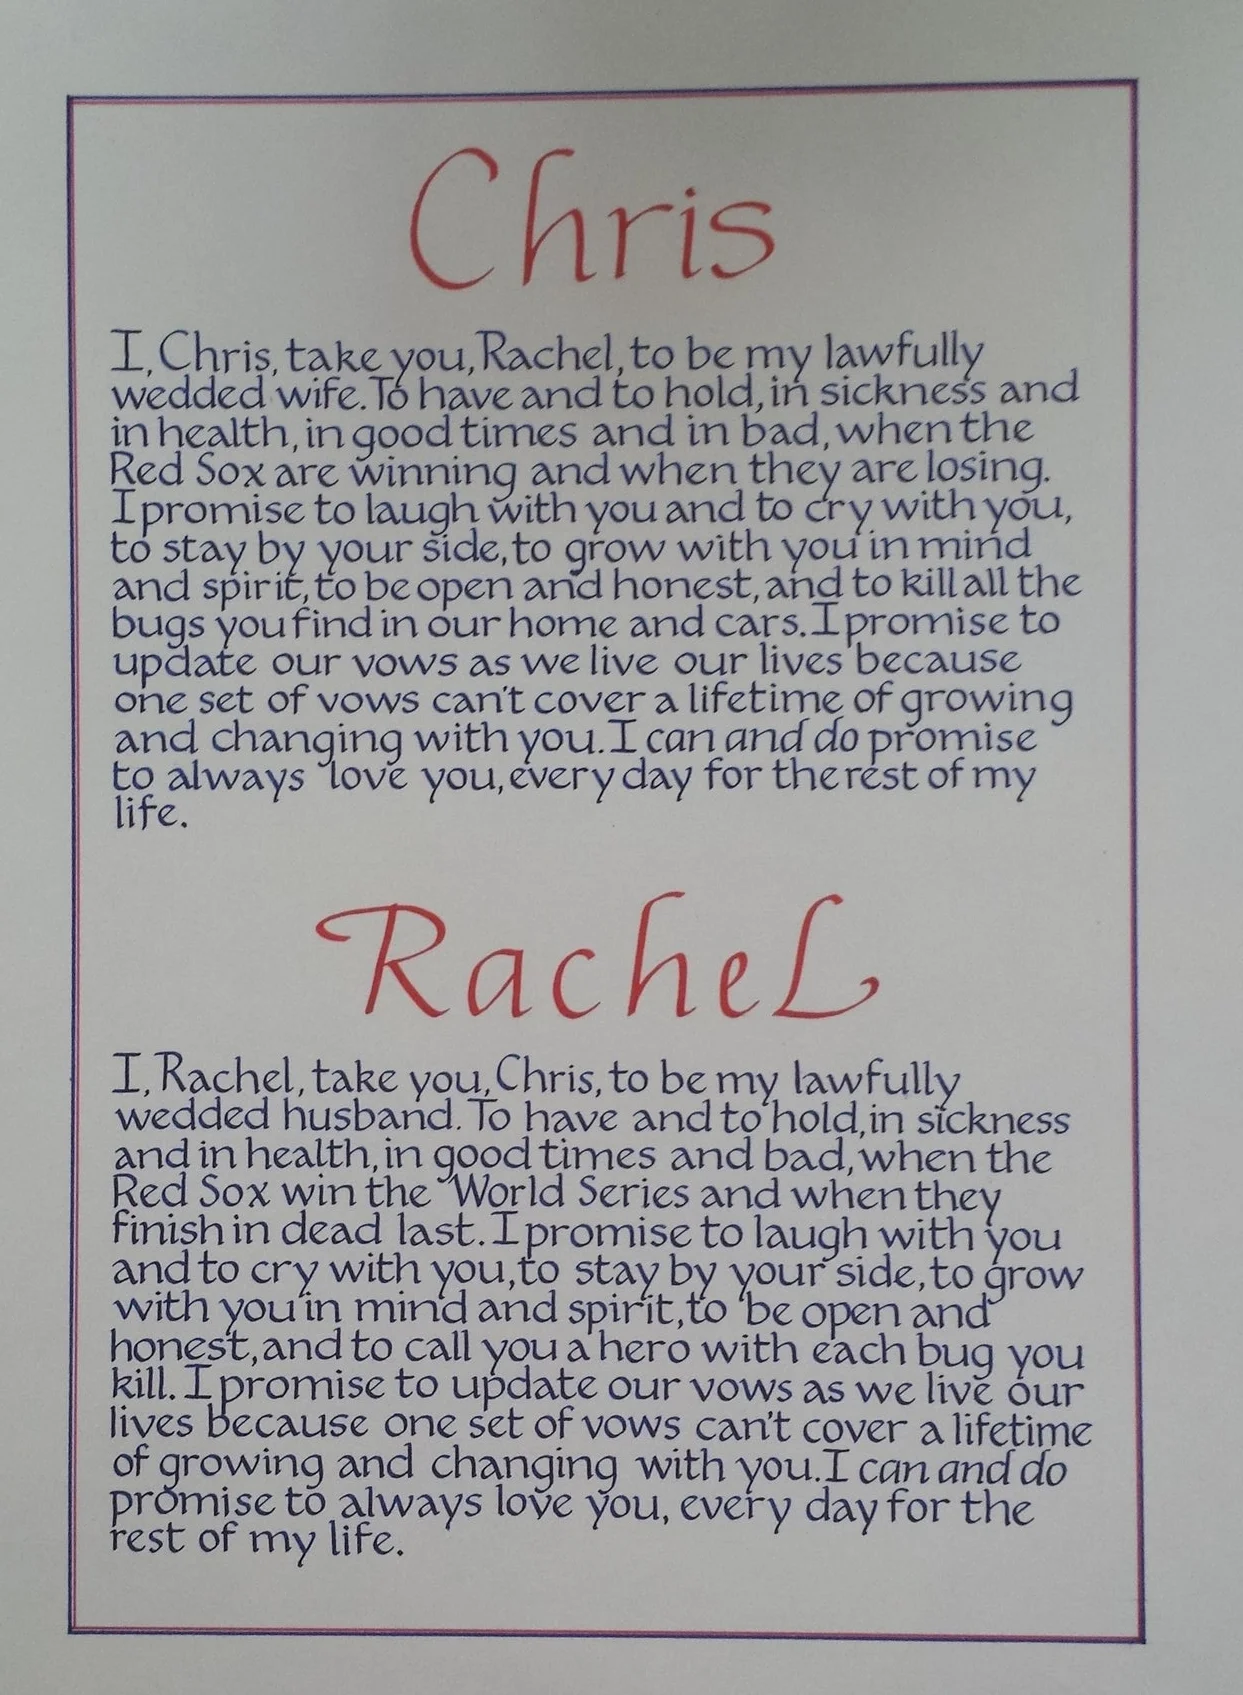 Chris
I, Chris, take you, Rachel, to be my lawfully
wedded wife. To have and to hold, in sickness and
in health, in good times and in bad, when the
Red Sox are winning and when they are losing.
I promise to laugh with you and to cry with you,
to stay by your side, to grow with you in mind
and spirit, to be open and honest, and to kill all the
bugs you find in our home and cars. I promise to
update our vows as we live our lives because
one set of vows can't cover a lifetime of growing
and changing with you. I can and do promise
to always love you, every day for the rest of my
life.
RacheL
I, Rachel, take you, Chris, to be my lawfully
wedded husband. To have and to hold, in sickness
and in health, in good times and bad, when the
Red Sox win the World Series and when they
finish in dead last. I promise to laugh with you
and to cry with you, to stay by your side, to grow
with you in mind and spirit, to be open and
honest, and to call you a hero with each bug you
kill. I promise to update our vows as we live our
lives because one set of vows can't cover a lifetime
of growing and changing with you. I can and do
promise to always love you, every day for the
rest of my life.